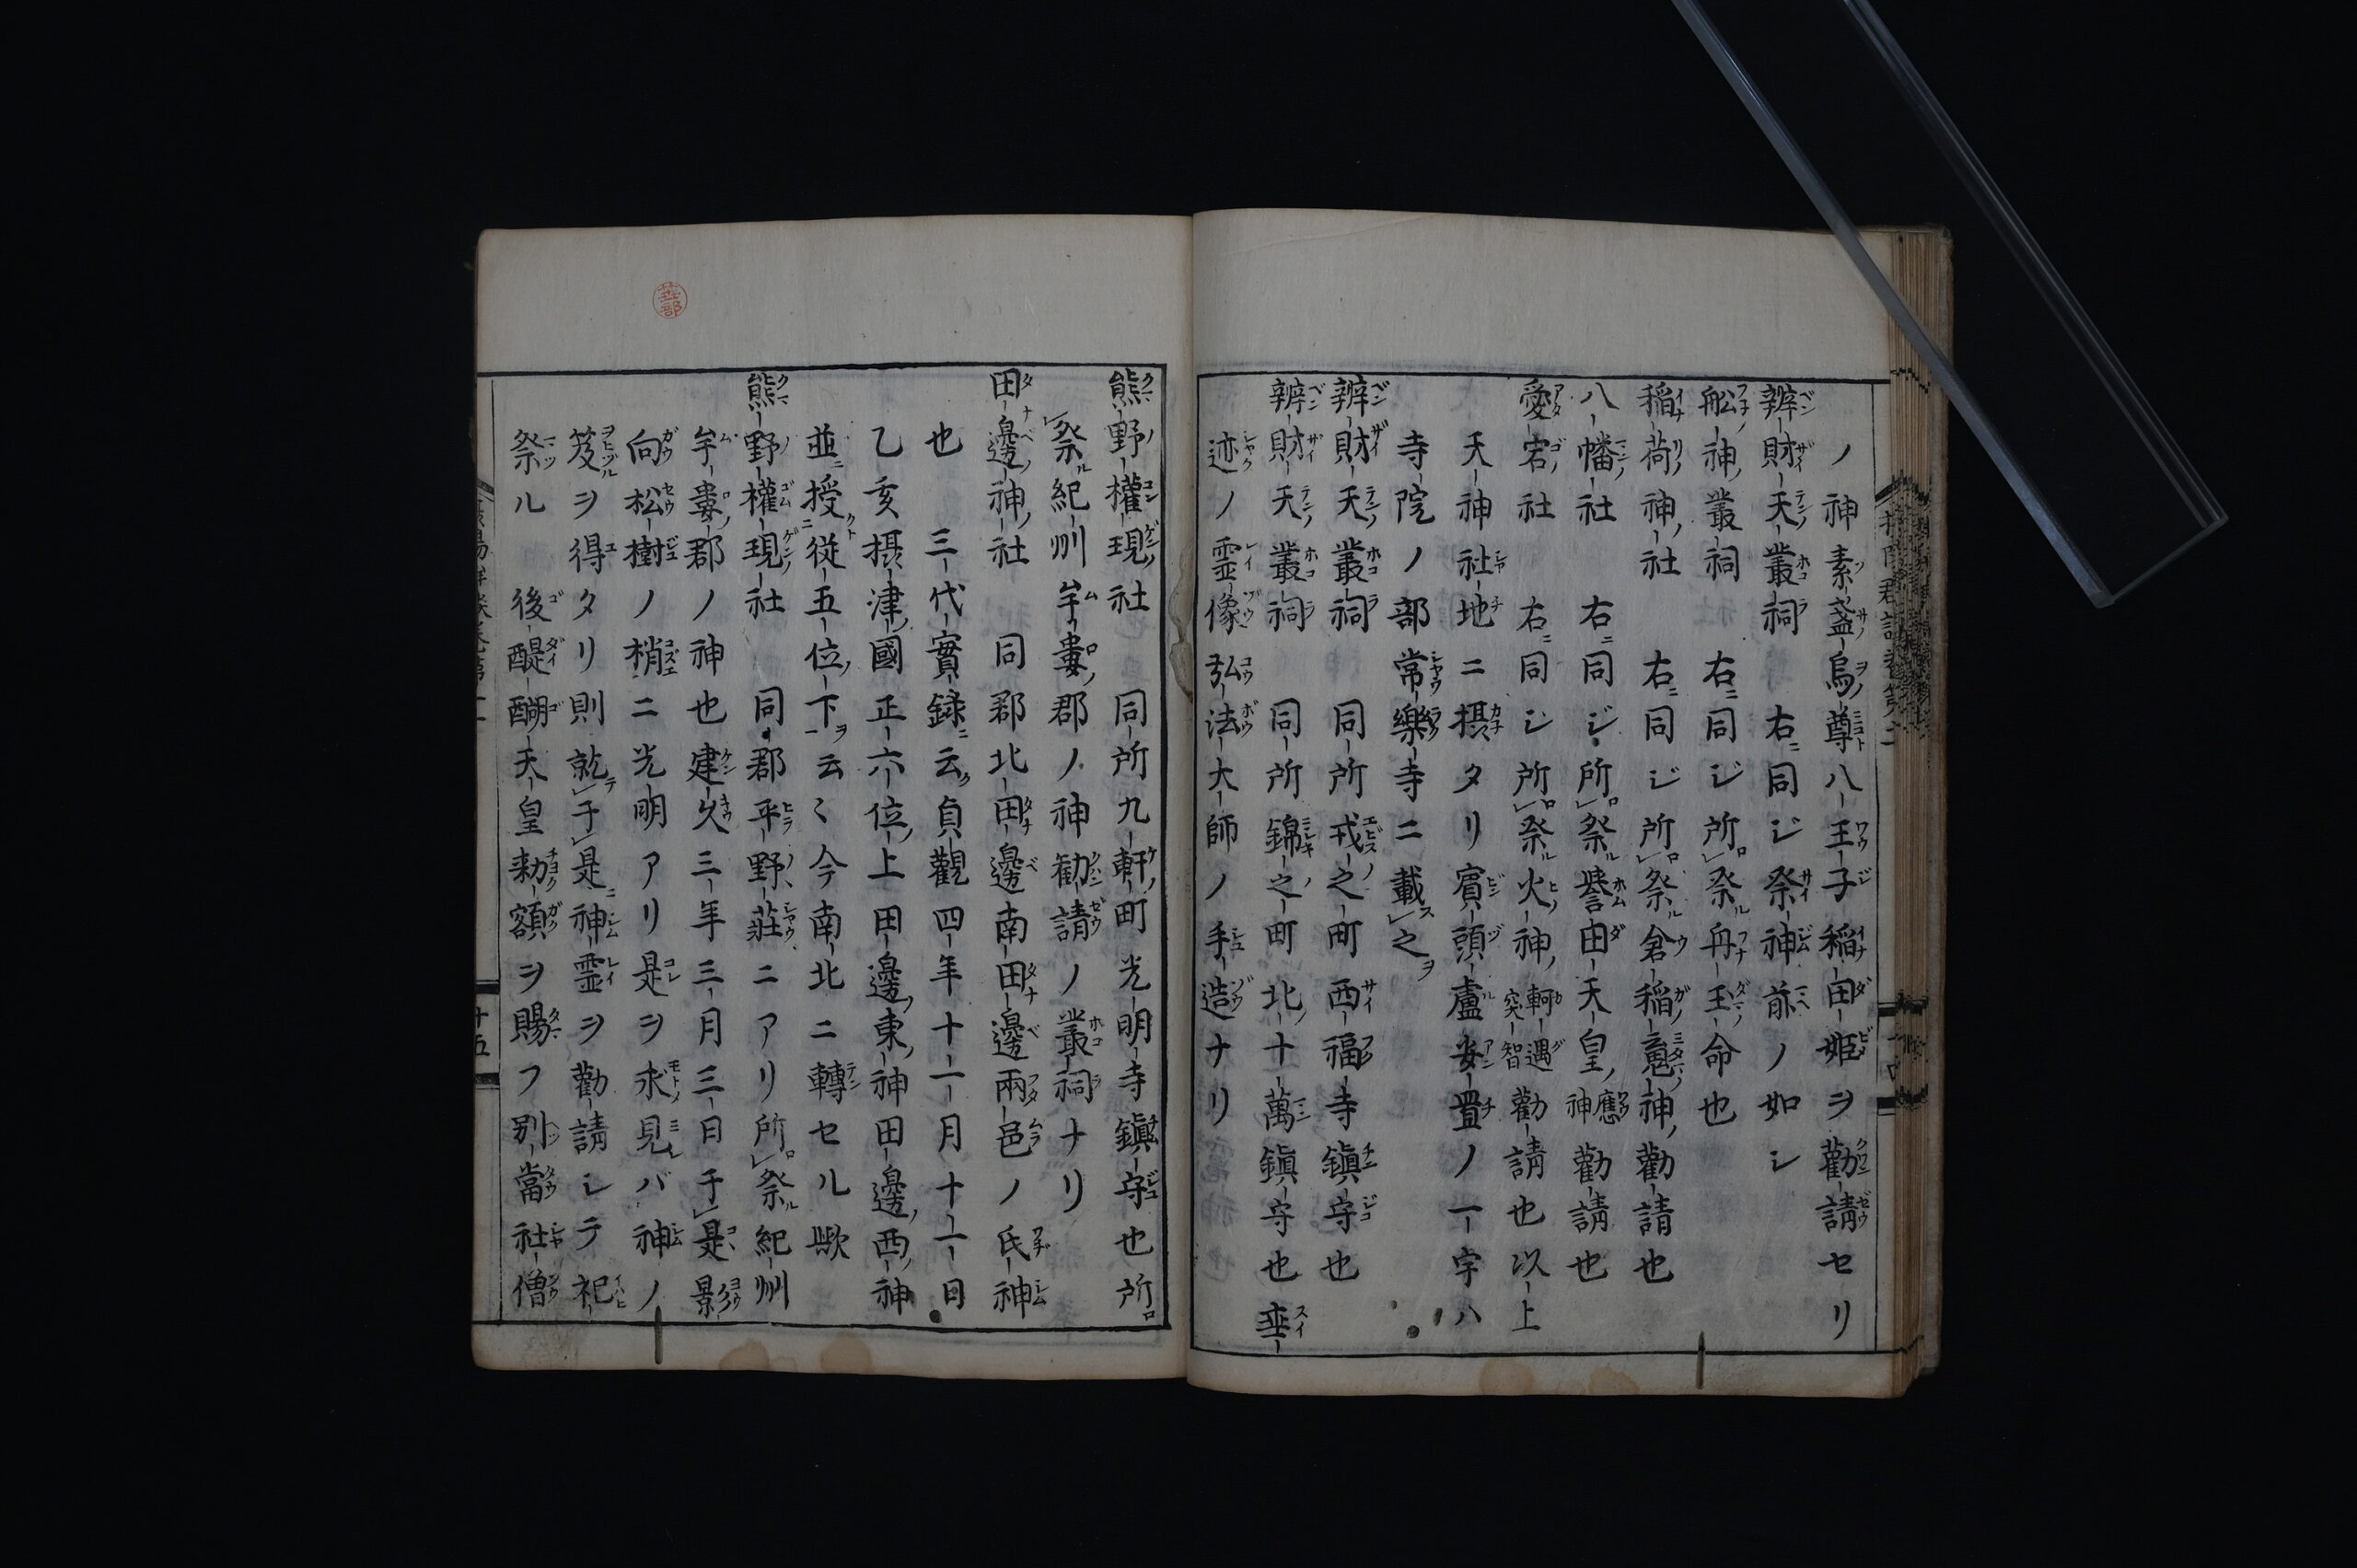 ノ神素盞烏尊八王子稲田姫ヲ勸請セリ
辨財天叢祠 右ニ同ジ祭神前ノ如シ
舩神叢祠 右ニ同ジ所祭舟玉命也
稲荷神社 右ニ同ジ所祭倉稲魂神勸請也
八幡社 右ニ同ジ所祭譽田天皇應神勸請也
愛宕社 右ニ同シ所祭火神軻遇突智勸請也以上
天神社地ニ摂タリ賓頭盧安置ノ一宇ハ
寺院ノ部常樂寺ニ載之
辨財天叢祠 同所戎之町西福寺鎭守也
辨財天叢祠 同所錦之町北十萬鎭守也垂
迹ノ霊像弘法大師ノ手造ナリ
熊野權現社 同所九軒町光明寺鎭守也所
祭紀州牟婁郡ノ神勧請ノ叢祠ナリ
田邊神社 同郡北田邊南田邊兩邑ノ氏神
也 三代實録ニ云貞觀四年十一月十一日
乙亥摂津國正六位上田邊東神田邊西神
並授従五位下云〻今南北ニ轉セル歟
熊野權現社 同郡平野莊ニアリ所祭紀州
牟婁郡ノ神也建久三年三月三日于是景
向松樹ノ梢ニ光明アリ是ヲ求見バ神ノ
笈ヲ得タリ則就于是神霊ヲ勸請シテ祀
祭ル 後醍醐天皇勅額ヲ賜フ別當社僧
十五